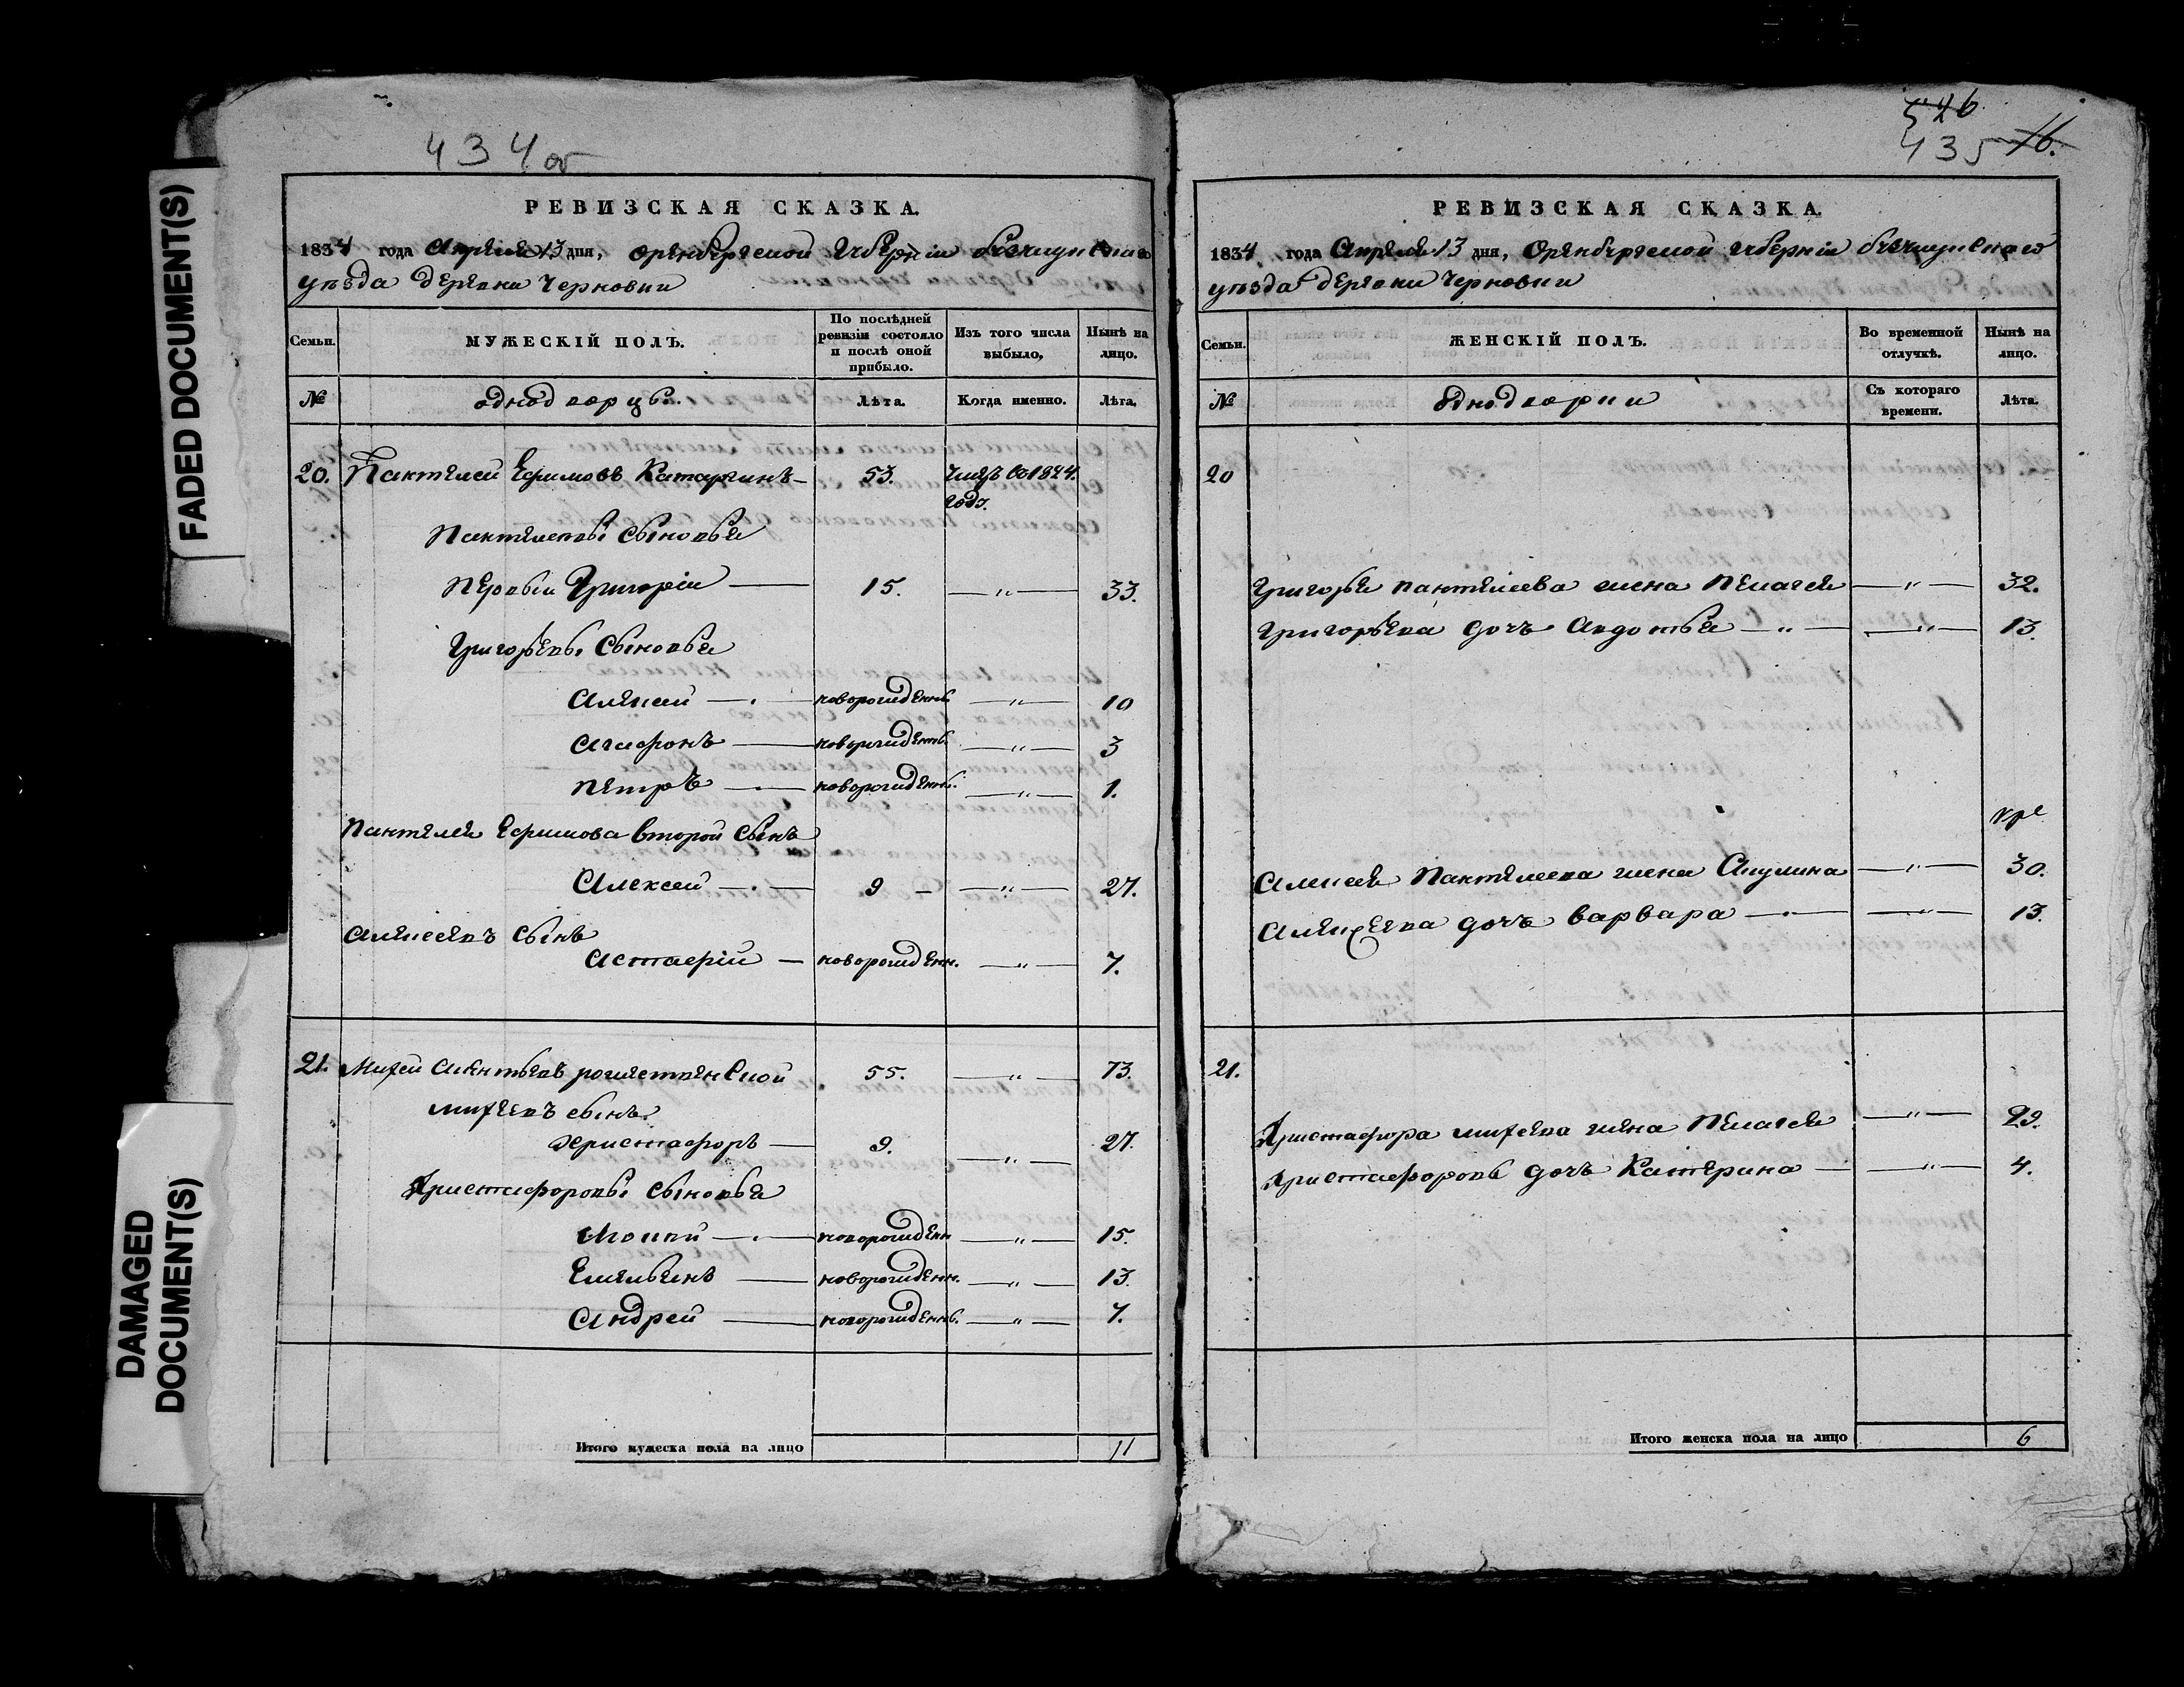 FADED DOCUMENT(S)
DAMAGED
DOCUMENT(S)
434об
РЕВИЗСКАЯ СКАЗКА.
1834 года Апреля 13 дня, Оренбургской Губернiи
уѣзда деревни Черновки
Семьи.
МУЖЕСКIЙ ПОЛЪ.
По послѣдней ревизiи состояло и послѣ оной прибыло.
Изъ того числа выбыло.
Нынѣ на лицо.
№ однодворцы. Лѣта. Когда именно. Лѣта.
20. Пантелей Ефимовъ Катаргинъ — 53. умеръ во 1824. годꙋ.
Пантелеевы Сыновья
первый Григорiй — 15. — " — 33.
Григорьевы Сыновья
Алексей — новорожденны. — " — 10
Агафонъ — новорожденны. — " — 3
петръ — новорожденны. — " — 1.
Пантелея Ефимова второй Сынъ
Алексей — 9 — — " — 27.
Алексеевъ Сынъ
Астафiй — новорожденн. — " — 7.
21. Михей Рожественской 55. — " — 73.
михеевъ сынъ
христафоръ — 9. — " — 27.
Христафоровы Сыновья
новорожденн — " — 15.
Емельянъ — новорожденн. — " — 13.
Андрей — новорожденны. — " — 7.
Итого мужеска пола на лицо 11
526
435 16.
РЕВИЗСКАЯ СКАЗКА.
1834 года Апреля 13 дня, Оренбургской губернiи
уѣзда деревни Черновки
Семьи.
ЖЕНСКIЙ ПОЛЪ.
Во временной отлучкѣ.
Нынѣ на лицо.
№ однодворки Съ котораго времени. Лѣта.
20
Григорья пантелеева жена Пелагея — " — 32.
Григорьева дочь Авдотья — " — — " — 13.
Алексея Пантелеева жена Акулина — " — 30.
Алексеева дочь варвара — — " — 13.
21.
Христафора михеева жена Пелагея — " — 29.
Христафорова дочь Катерина — — " — 4.
Итого женска пола на лицо 6